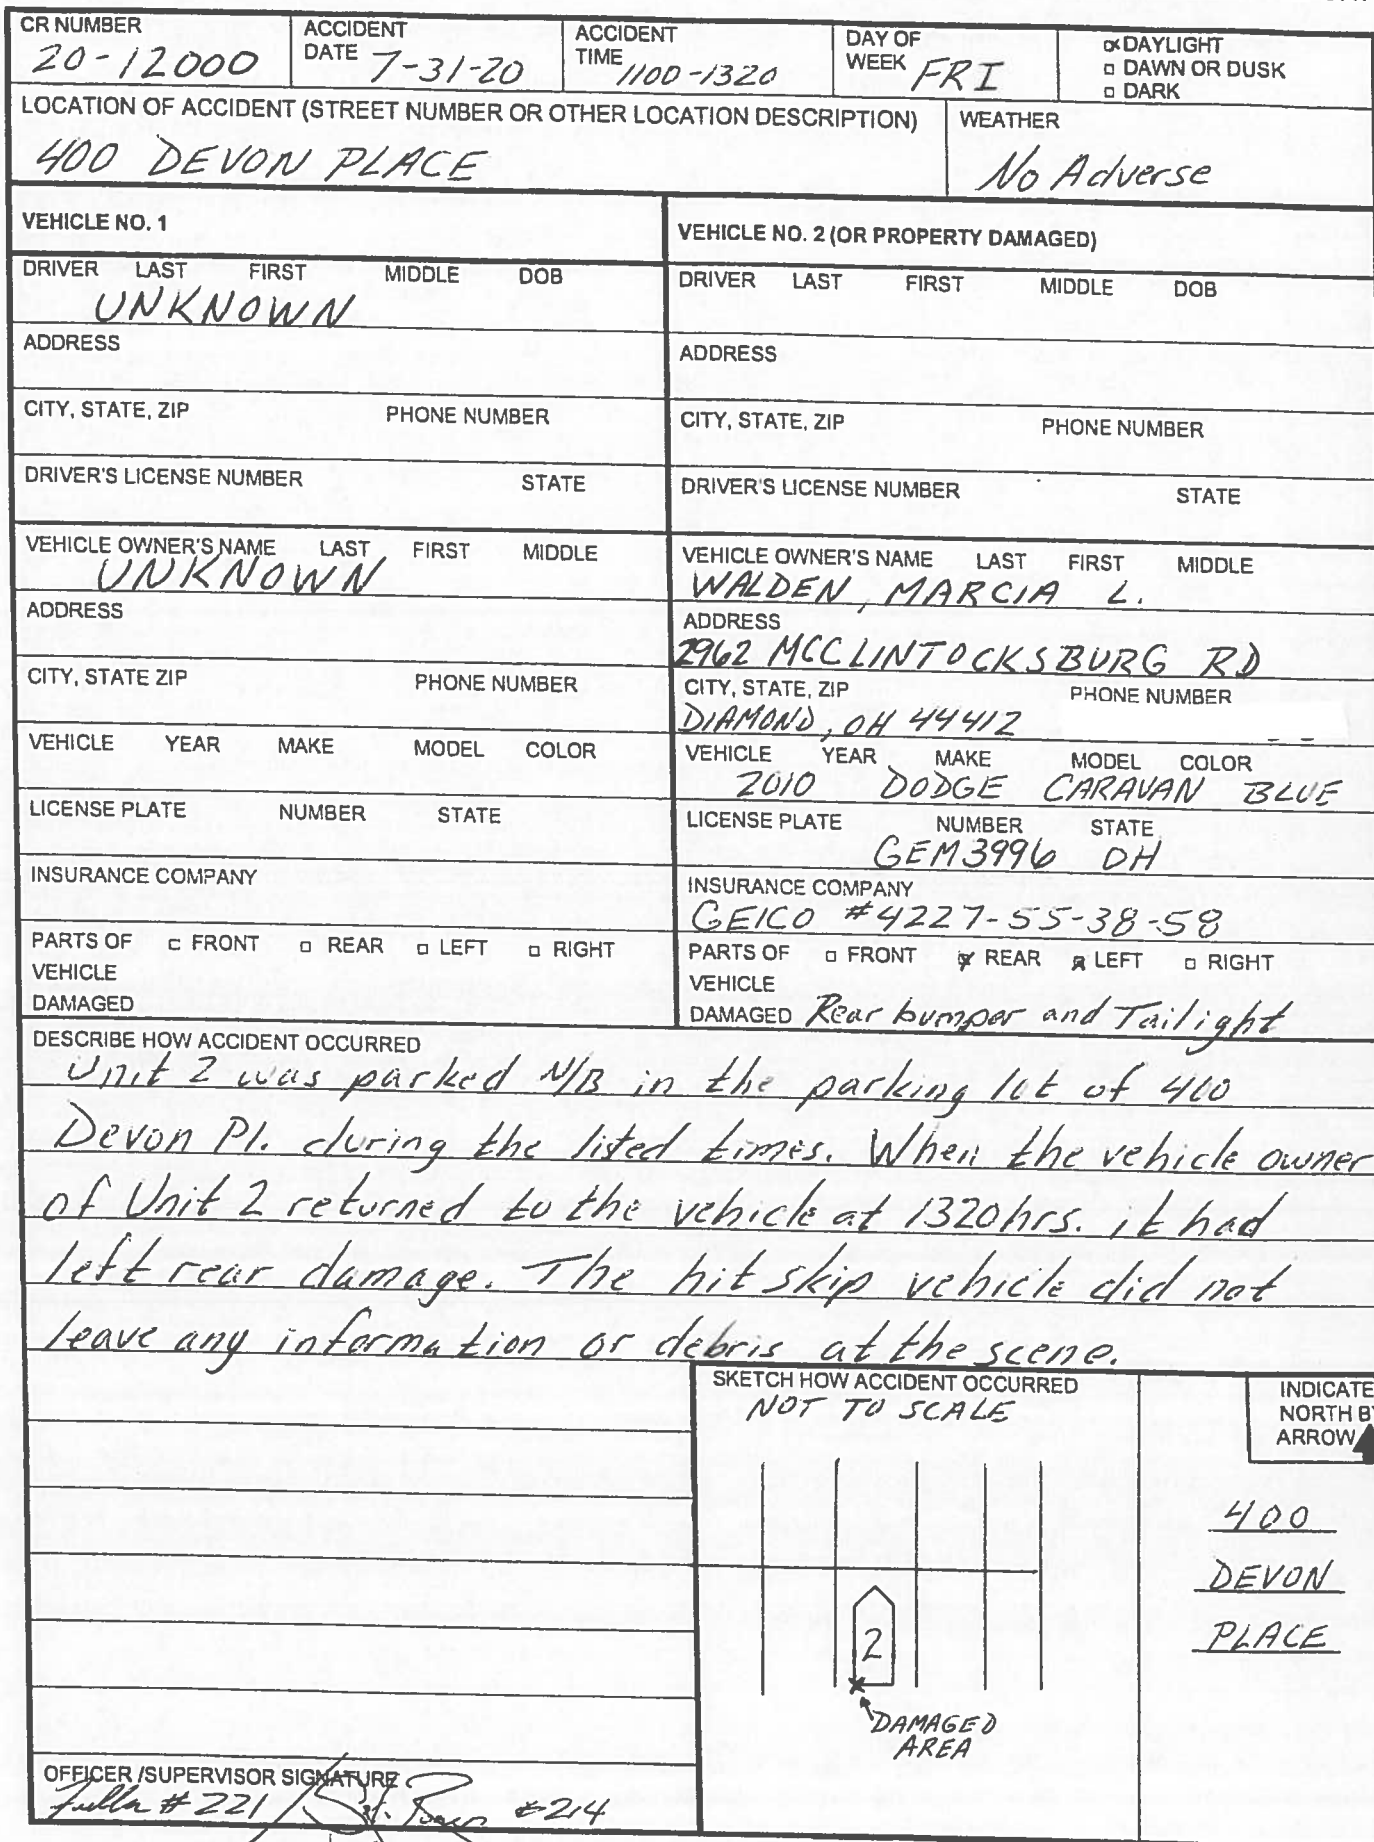 CR NUMBER
20-12000
ACCIDENT
DATE 7-31-20
ACCIDENT
TIME 1100-1320
DAY OF
WEEK FRI
DAYLIGHT
DAWN OR DUSK
DARK
LOCATION OF ACCIDENT (STREET NUMBER OR OTHER LOCATION DESCRIPTION)
400 DEVON PLACE
WEATHER
No Adverse
VEHICLE NO. 1
DRIVER LAST FIRST MIDDLE DOB
UNKNOWN
ADDRESS
CITY, STATE, ZIP PHONE NUMBER
DRIVER'S LICENSE NUMBER STATE
VEHICLE OWNER'S NAME LAST FIRST MIDDLE
UNKNOWN
ADDRESS
CITY, STATE ZIP PHONE NUMBER
VEHICLE YEAR MAKE MODEL COLOR
LICENSE PLATE NUMBER STATE
INSURANCE COMPANY
PARTS OF FRONT REAR LEFT RIGHT
VEHICLE
DAMAGED
VEHICLE NO. 2 (OR PROPERTY DAMAGED)
DRIVER LAST FIRST MIDDLE DOB
ADDRESS
CITY, STATE, ZIP PHONE NUMBER
DRIVER'S LICENSE NUMBER STATE
VEHICLE OWNER'S NAME LAST FIRST MIDDLE
WALDEN, MARCIA L.
ADDRESS
2962 MCCLINTOCKSBURG RD
CITY, STATE, ZIP PHONE NUMBER
DIAMOND, OH 44412
VEHICLE YEAR MAKE MODEL COLOR
2010 DODGE CARAVAN BLUE
LICENSE PLATE NUMBER STATE
GEM3996 OH
INSURANCE COMPANY
GEICO #4227-55-38-58
PARTS OF FRONT REAR LEFT RIGHT
VEHICLE
DAMAGED Rear bumper and Tailight
DESCRIBE HOW ACCIDENT OCCURRED
Unit 2 was parked N/B in the parking lot of 400
Devon Pl. during the listed times. When the vehicle owner
of Unit 2 returned to the vehicle at 1320hrs. it had
left rear damage. The hit skip vehicle did not
leave any information or debris at the scene.
SKETCH HOW ACCIDENT OCCURRED
NOT TO SCALE
INDICATE
NORTH BY
ARROW
400
DEVON
PLACE
2
DAMAGED
AREA
OFFICER /SUPERVISOR SIGNATURE
#221 / Sgt. #214